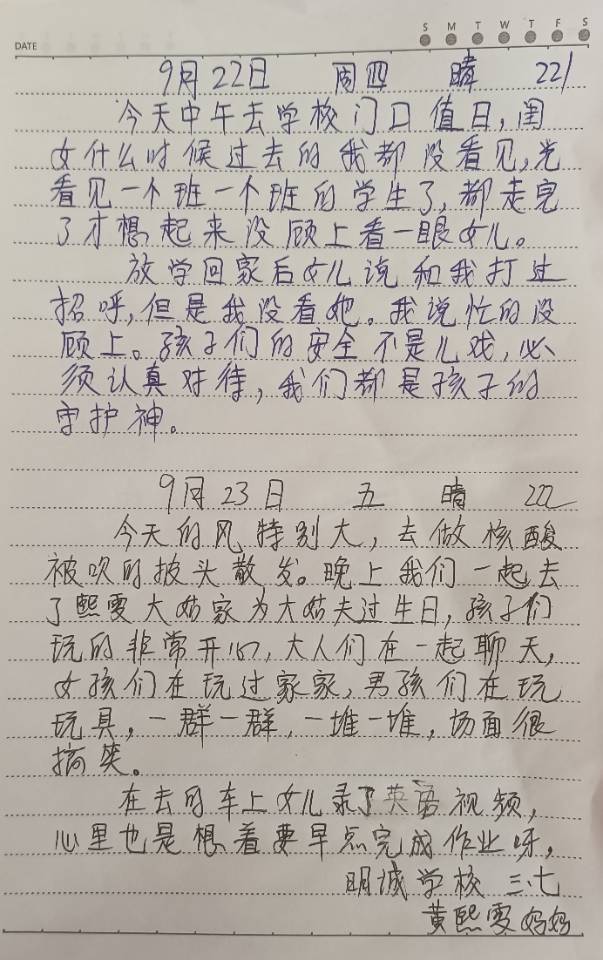 DATE
S M T W T F S
9月22日 周四 晴 221
今天中午去学校门口值日,闺
女什么时候过去的我都没看见,光
看见一个班一个班的学生了,都走完
了才想起来没顾上看一眼女儿。
放学回家后女儿说和我打过
招呼,但是我没看她。我说忙的没
顾上。孩子们的安全不是儿戏,必
须认真对待,我们都是孩子的
守护神。
9月23日 五 晴 222
今天的风特别大,去做核酸
被吹的披头散发。晚上我们一起去
了熙雯大姑家为大姑夫过生日,孩子们
玩的非常开心,大人们在一起聊天,
女孩们在玩过家家,男孩们在玩
玩具,一群一群,一堆一堆,场面很
搞笑。
在去的车上女儿录了英语视频,
心里也是想着要早点完成作业呀,
明诚学校 三.七
黄熙雯妈妈